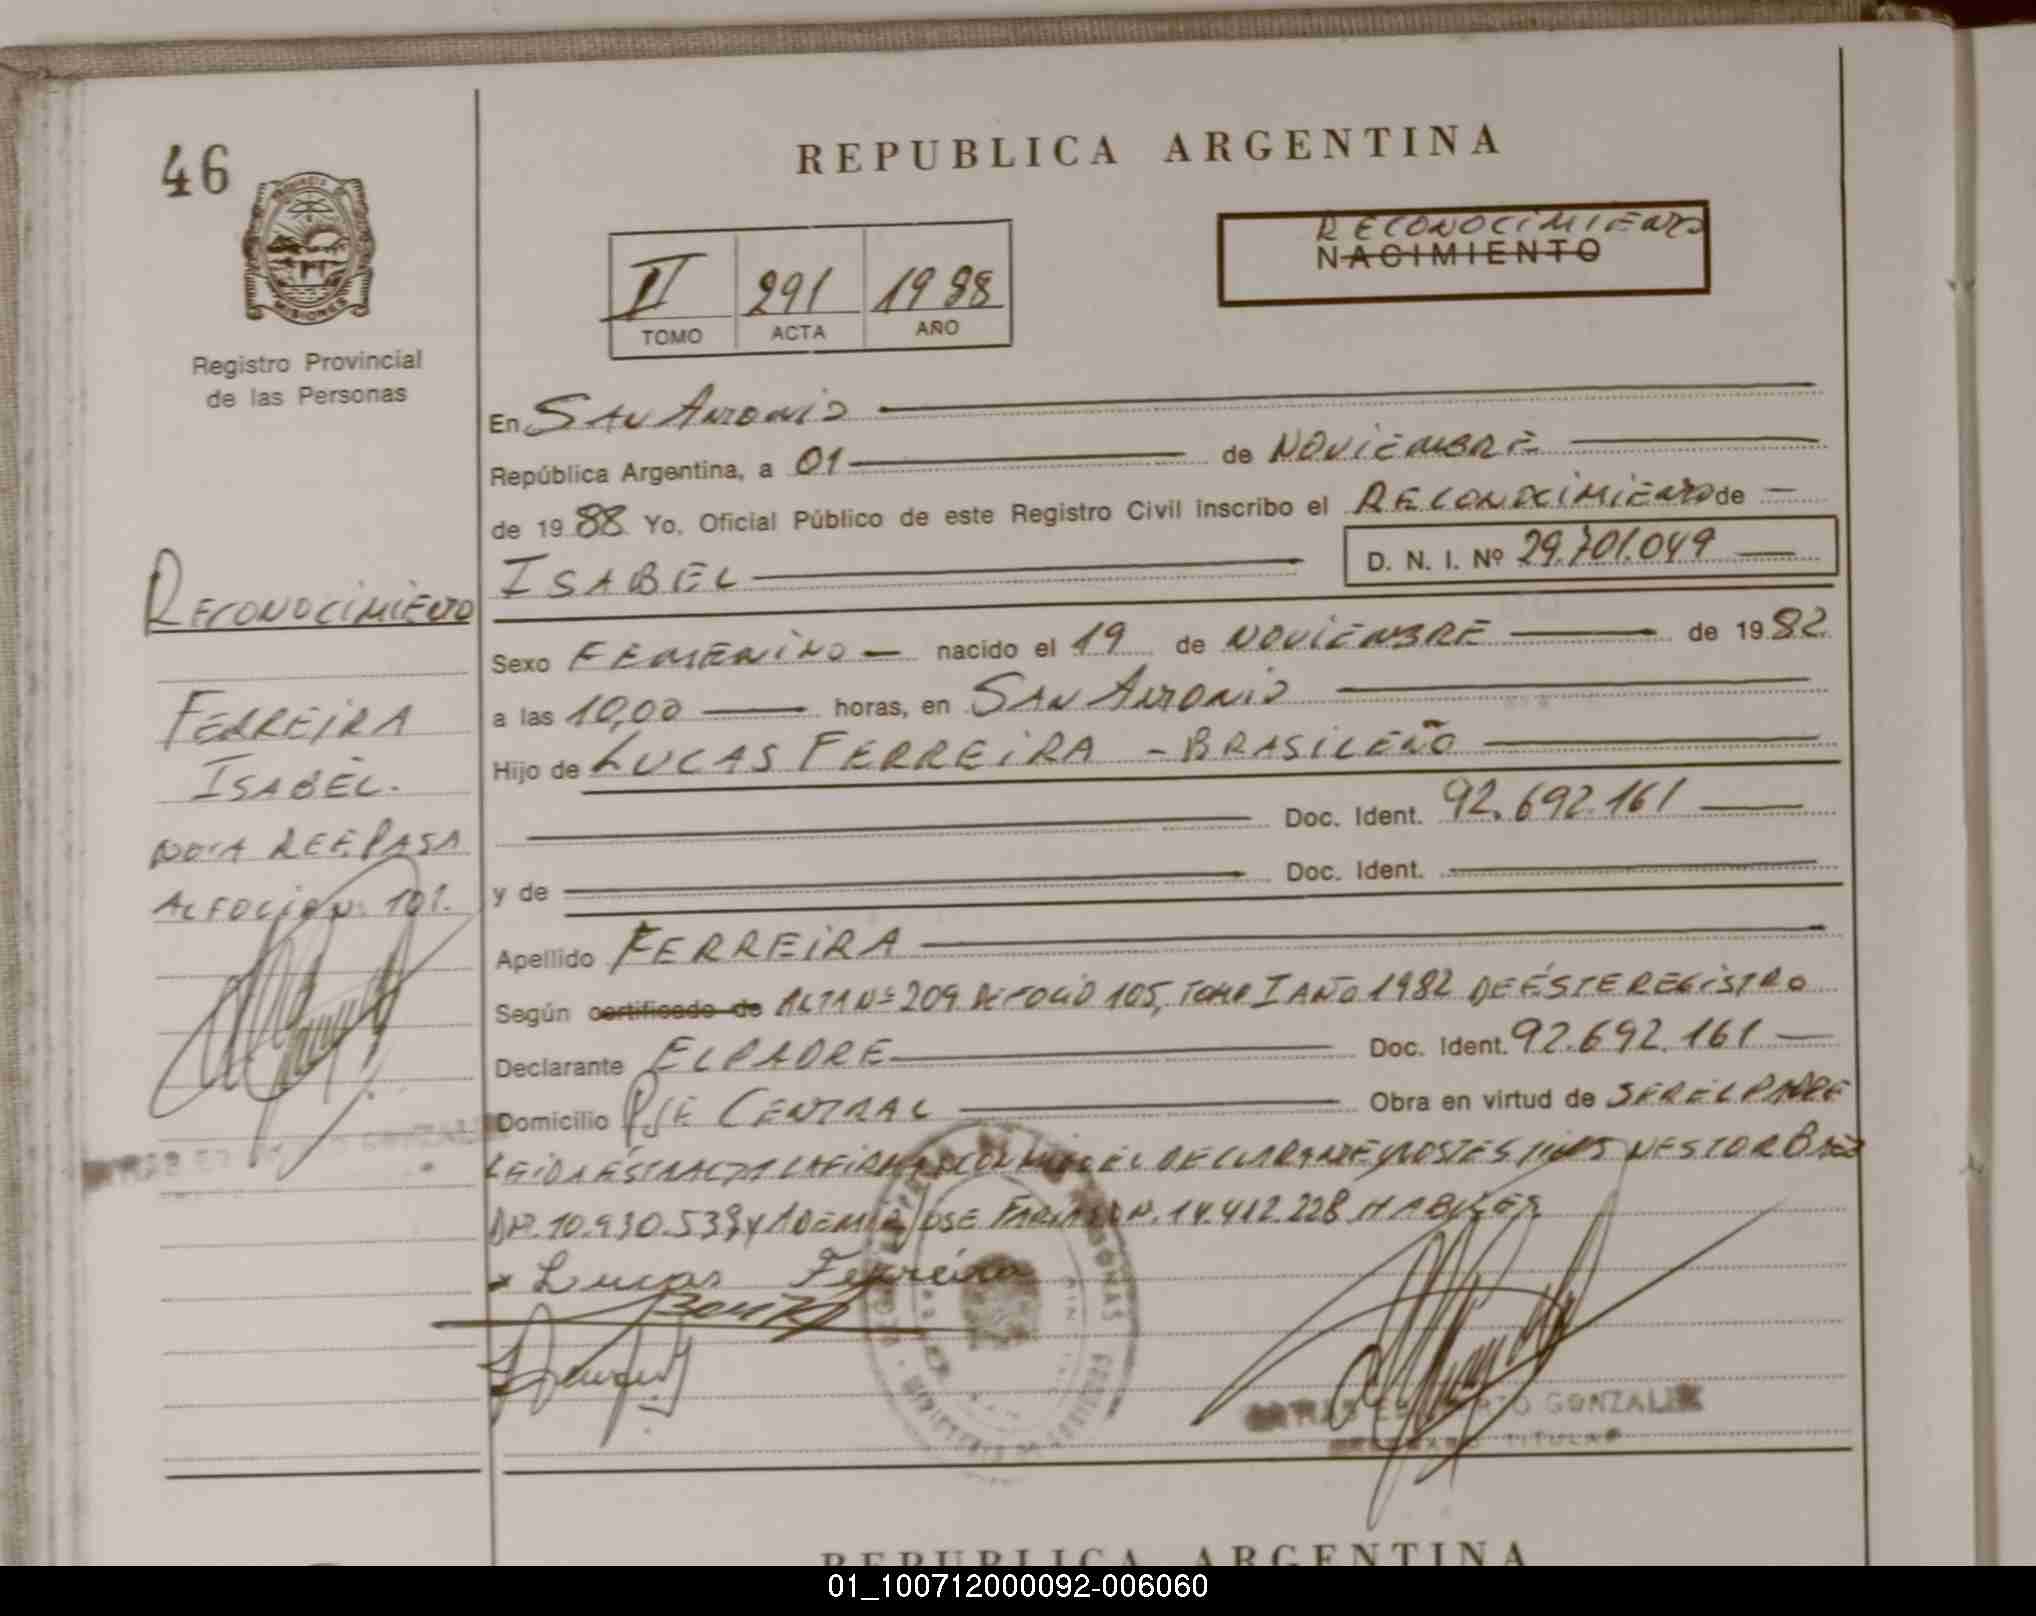 46
REPUBLICA ARGENTINA
RECONOCIMIENTO
NACIMIENTO
II 291 1988
TOMO ACTA AÑO
MISIONES
Registro Provincial
de las Personas
En SAN ANTONIO
República Argentina, a 01 de NOVIEMBRE
de 19 88 Yo, Oficial Público de este Registro Civil inscribo el RECONOCIMIENTO de
ISABEL D. N. I. Nº 29.701.049
RECONOCIMIENTO
Sexo FEMENINO nacido el 19 de NOVIEMBRE de 19 82
FERREIRA
a las 10,00 horas, en SAN ANTONIO
ISABEL.
Hijo de LUCAS FERREIRA - BRASILEÑO
Doc. Ident. 92.692.161
NOTA REF. PASA
y de Doc. Ident.
AL FOLIO N: 101.
Apellido FERREIRA
Según certificado de ACTA Nº 209 DE FOLIO 105, TOMO I AÑO 1982 DE ÉSTE REGISTRO
Declarante EL PADRE Doc. Ident. 92.692.161
Domicilio PJE CENTRAL Obra en virtud de SER EL PADRE
LEIDA ÉSTA ACTA LA FIRMA CONMIGO EL DECLARANTE Y LOS TESTIGOS NESTOR BAEZ
DNI. 10.930.538 Y ADEMIR JOSE FARIAS DNI. 14.412.228 HABILES
Lucas Ferreira
GONZALEZ
TITULAR
REPUBLICA ARGENTINA
01_100712000092-006060